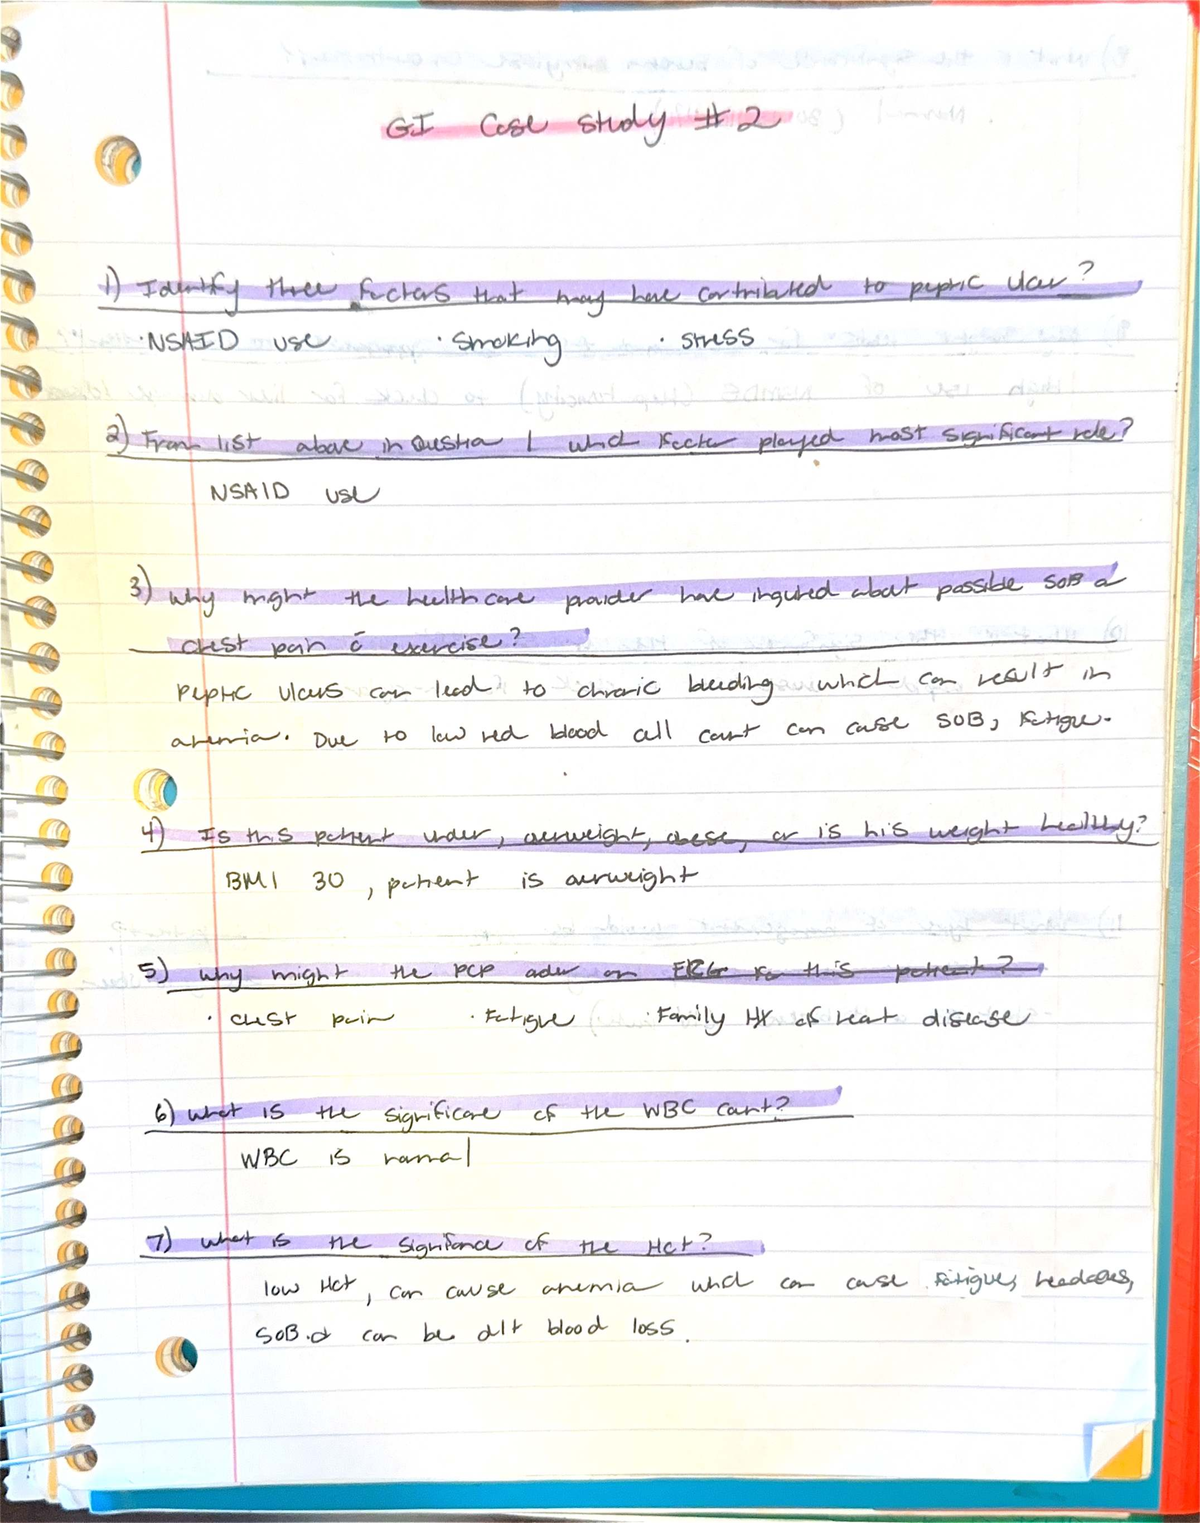 GI Case Study #2
1) Identify three factors that may have contributed to peptic ulcer?
· NSAID use · Smoking · Stress
2) From list above in Question 1 which factor played most significant role?
NSAID use
3) Why might the health care provider have inquired about possible SOB &
chest pain c̄ exercise?
Peptic ulcers can lead to chronic bleeding which can result in
anemia. Due to low red blood cell count can cause SOB, fatigue.
4) Is this patient under, overweight, obese, or is his weight healthy?
BMI 30, patient is overweight
5) Why might the PCP order an EKG for this patient?
· chest pain · Fatigue · Family Hx of heat disease
6) What is the significance of the WBC count?
WBC is normal
7) What is the signifance of the Hct?
low Hct, can cause anemia which can cause fatigue, headaches,
SOB. & can be d/t blood loss.